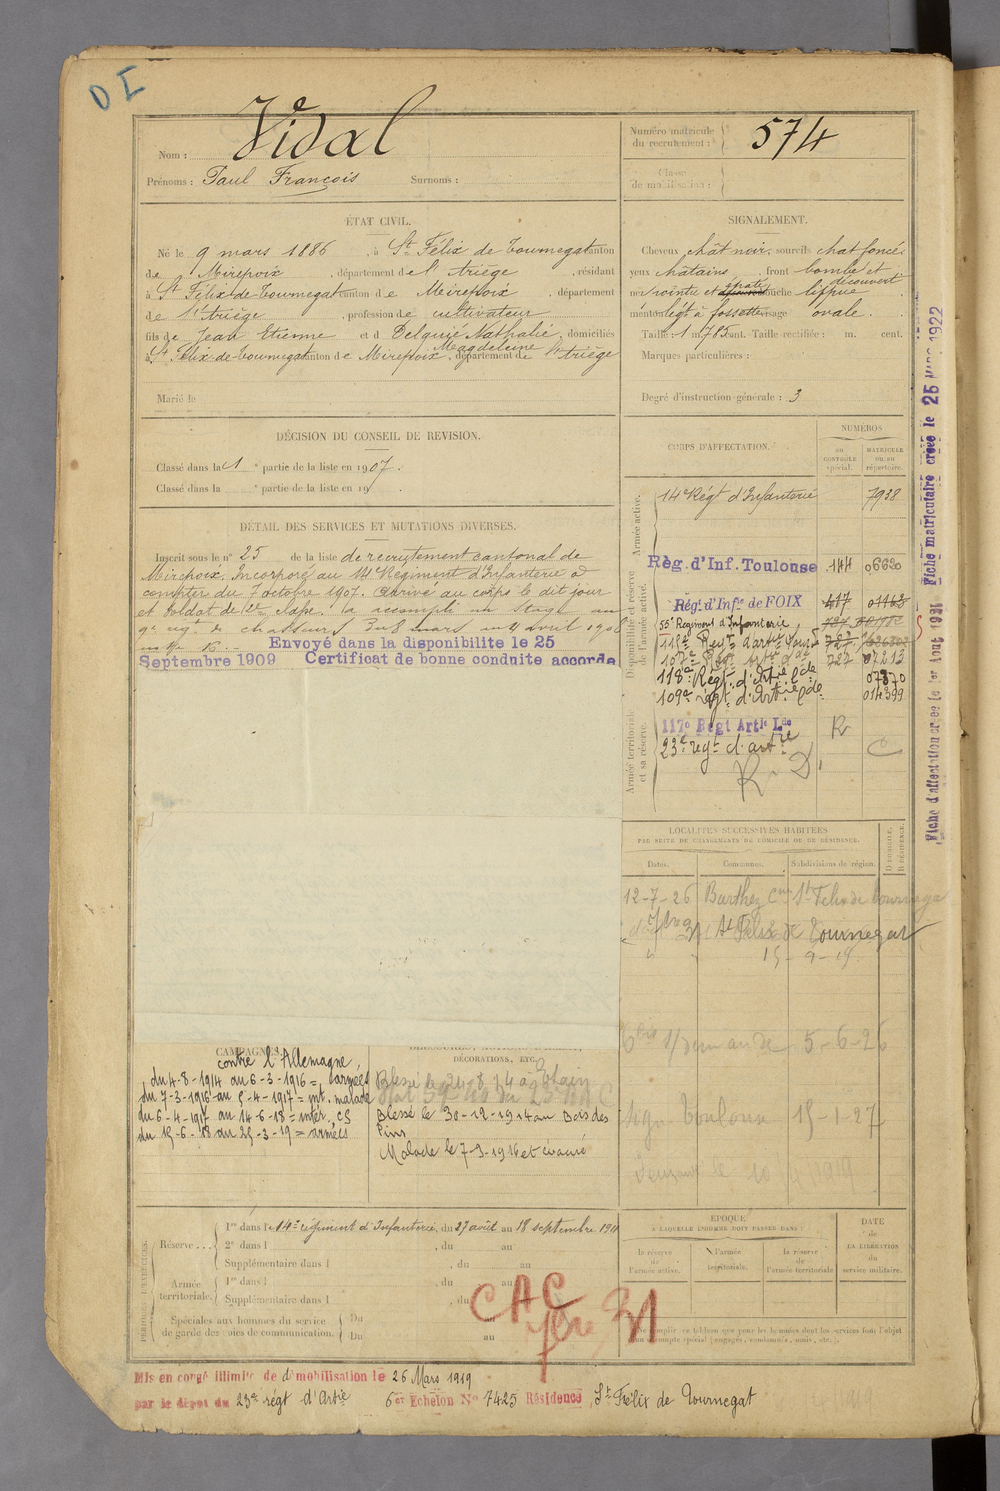 D I
Nom : Vidal
Prénoms : Paul François Surnoms :
Numéro matricule du recrutement : 574
Classe de mobilisation :
ÉTAT CIVIL.
Né le 9 mars 1886, à St Félix de Tournegat canton
de Mirepoix, département de l'Ariège, résidant
à St Félix-de-Tournegat canton de Mirepoix, département
de l'Ariège, profession de cultivateur
fils de Jean Etienne et d Delquié Nathalie, domiciliés
Magdeleine
à St Félix-de-Tournegat canton de Mirepoix, département de l'Ariège
Marié le
SIGNALEMENT.
Cheveux chât noir, sourcils chat foncé
yeux chatains, front bombé et
découvert
nez pointu et bouche lippue
menton visage ovale.
Taille : 1 m. 785 cent. Taille rectifiée : m. cent.
Marques particulières :
Degré d'instruction générale : 3
DÉCISION DU CONSEIL DE REVISION.
Classé dans la 1e partie de la liste en 1907.
Classé dans la e partie de la liste en 19 .
DÉTAIL DES SERVICES ET MUTATIONS DIVERSES.
Inscrit sous le n° 25 de la liste de recrutement cantonal de
Mirepoix. Incorporé au 14e Régiment d'Infanterie à
compter du 7 octobre 1907. Arrivé au corps le dit jour
et soldat de 2e classe. a accompli un stage au
9e rgt de chasseurs du 8 mars au 4 avril 1908
Envoyé dans la disponibilite le 25
Septembre 1909 Certificat de bonne conduite accordé
CORPS D'AFFECTATION.
NUMÉROS
au contrôle spécial.
matricule ou au répertoire.
Armée active.
14e Régt d'Infanterie 7938
Disponibilité et réserve de l'armée active.
Rég. d'Inf. Toulouse 144 0662
Régt d'Infie de FOIX 417 01162
55e Régiment d'Infanterie,
118e Regt d'artie lourde
107e Regt Artie 727 07213
118e Régt d'Artie lde 07870
109e régt d'Artie lde 014399
Armée territoriale et sa réserve.
117e Régt Artie Lde R
23e régt d'artie C
R. D.
LOCALITÉS SUCCESSIVES HABITÉES
PAR SUITE DE CHANGEMENTS DE DOMICILE OU DE RÉSIDENCE.
Dates. Communes. Subdivisions de région. D DOMICILE. R RÉSIDENCE.
12-7-26 Barthez Cne St Felix de Tournega
St Félix de Tournegat
15-9-19
5-6-26
Toulouse 15-1-27
Fiche d'affectation créée le 1er Aout 1921 Fiche matriculaire créée le 25 Mars 1922
CAMPAGNES.
contre l'Allemagne,
du 4-8-1914 au 6-3-1916 = armées
du 7-3-1916 au 5-4-1917 = int. malade
du 6-4-1917 au 14-6-18 = inter, CS
du 15-6-18 au 25-3-19 = armées
DÉCORATIONS, ETC.
Blessé le 24 8 14 à
Blessé le 30-12-1914 au Bois des
Pins
Malade le 7-3-1916 et évacué
PÉRIODES D'EXERCICES.
Réserve... 1re dans le 14e régiment d'Infanterie, du 27 août au 18 septembre 1911
2e dans l , du au
Supplémentaire dans l , du au
Armée territoriale. 1re dans l , du au
Supplémentaire dans l , du
Spéciales aux hommes du service de garde des voies de communication. Du
Du au
CAC
31
ÉPOQUE
À LAQUELLE L'HOMME DOIT PASSER DANS :
la réserve de l'armée active.
l'armée territoriale.
la réserve de l'armée territoriale
DATE de LA LIBÉRATION du service militaire.
Ne remplir ce tableau que pour les hommes dont les services font l'objet
d'un décompte spécial (engagés, condamnés, omis, etc.)
Mis en congé illimité de démobilisation le 26 Mars 1919
par le dépot du 23e régt d'Artie 6er Echelon No 7425 Résidence, St Félix de Tournegat